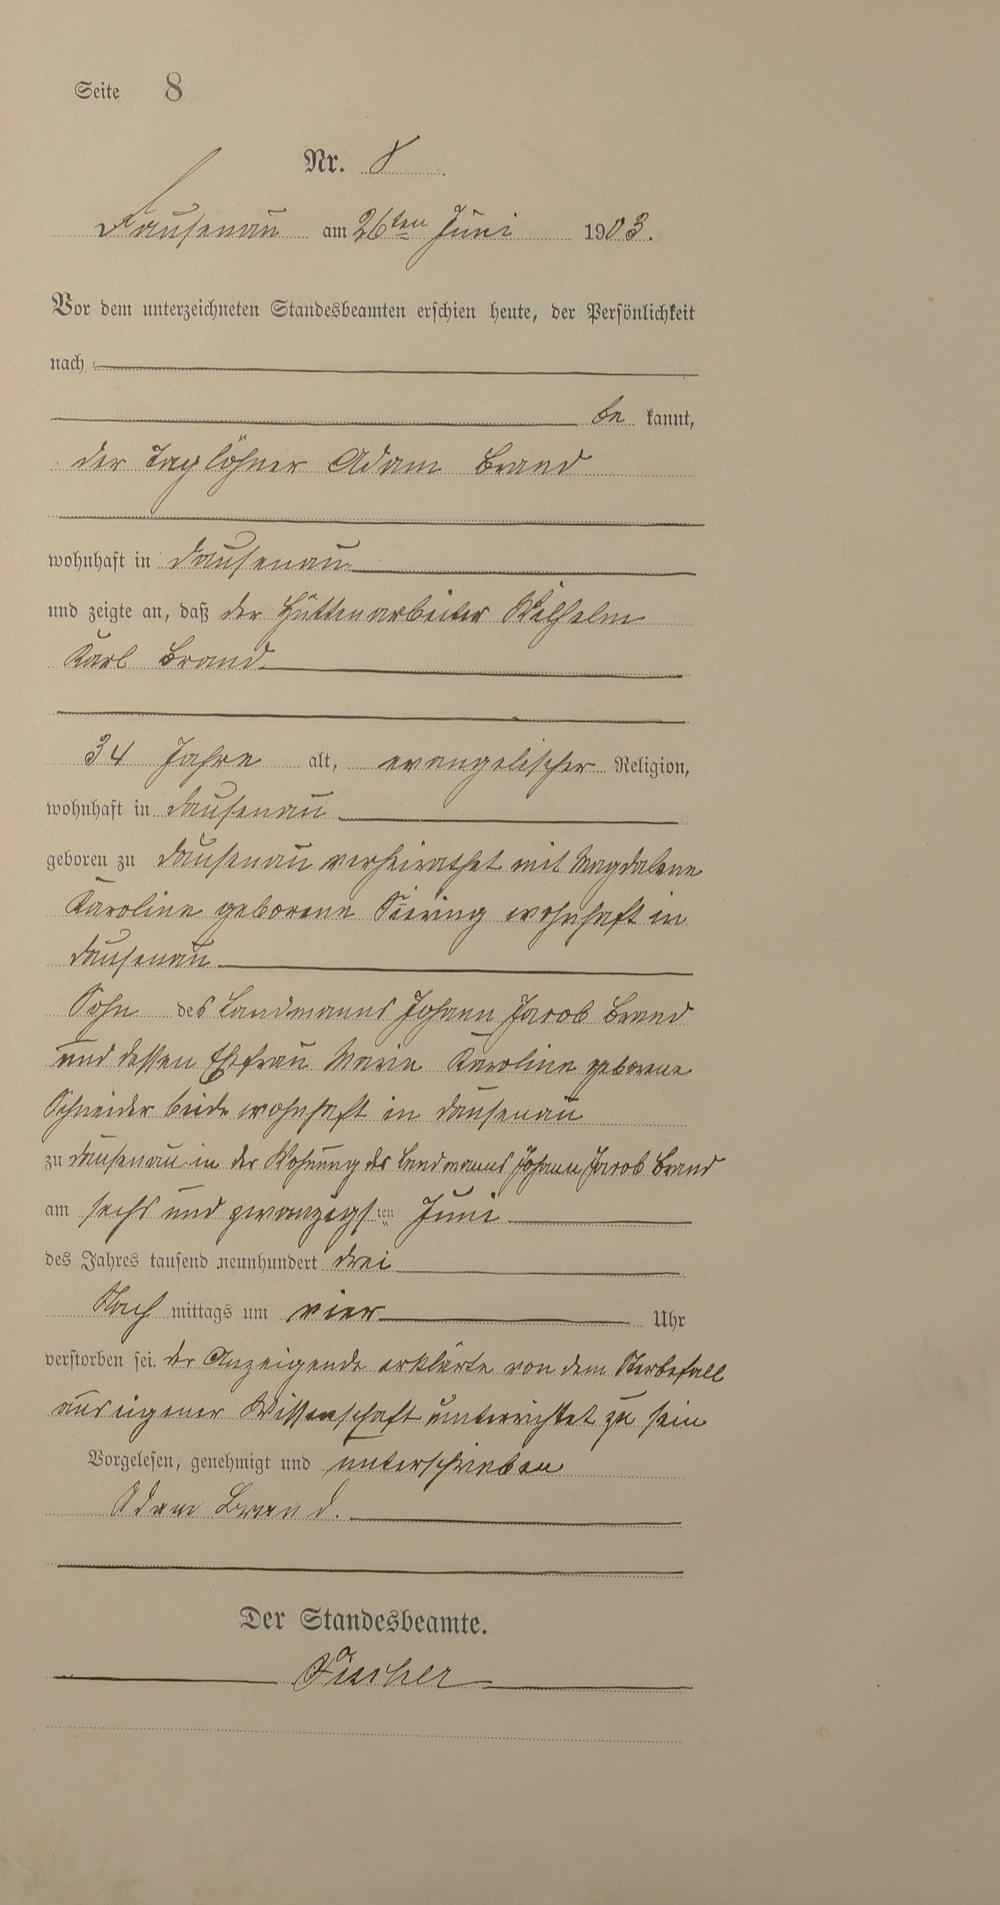 Seite 8
Nr. 8
Dausenau am 26ten Juni 1903.
Vor dem unterzeichneten Standesbeamten erschien heute, der Persönlichkeit
nach
be kannt,
der Taglöhner Adam Brand
wohnhaft in Dausenau
und zeigte an, daß der Hüttenarbeiter Wilhelm
Karl Brand
34 Jahre alt, evangelischer Religion,
wohnhaft in Dausenau
geboren zu Dausenau verheirathet mit Magdalene
Karoline geborene wohnhaft in
Dausenau
Sohn des Landmanns Johann Jacob Brand
und dessen Ehefrau Marie Karoline geborene
Schneider beide wohnhaft in Dausenau
zu Dausenau in der Wohnung des Landmanns Johann Jacob Brand
am sechs und zwanzigsten Juni
des Jahres tausend neunhundert drei
Nach mittags um vier Uhr
verstorben sei. der Anzeigende erklärte von dem Sterbefall
aus eigener Wissenschaft unterrichtet zu sein
Vorgelesen, genehmigt und unterschrieben
Adam Brand.
Der Standesbeamte.
Fischer